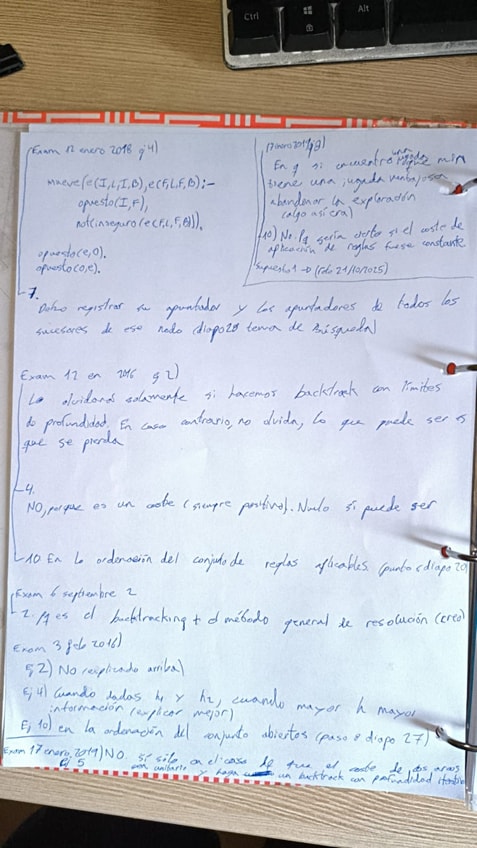 Ctrl
Alt
(Exam 12 enero 2018 ej 4)
mueve(e(I,L,I,B),e(F,L,F,B):-
opuesto(I,F),
not(inseguro(e(F,L,F,B)).
opuesto(e,o).
opuesto(o,e).
En q si encuentro una min
tiene una jugada ventajosa
abandonar la exploración
(algo así era)
10) No. Pq sería cierto si el coste de
aplicación de reglas fuese constante
Supuesto 1 → (21/10/2025)
7.
Debo registrar su apuntador y los apuntadores de todos los
sucesores de ese nodo (diapo 28 tema de búsqueda)
Exam 12 en 2016 ej 2)
Lo olvidará solamente si hacemos backtrack con límites
de profundidad. En caso contrario, no olvida, lo que puede ser es
que se pierda
4.
NO, porque es un coste (siempre positivo). Nulo sí puede ser
10 En la ordenación del conjunto de reglas aplicables (punto 5 diapo 20)
Exam 6 septiembre 2
2. Pq es el backtracking + el método general de resolución (creo)
Exam 3 feb 2016)
Ej 2) No (explicado arriba)
Ej 4) Cuando dadas h1 y h2, cuando mayor h mayor
información (explicar mejor)
Ej 10) en la ordenación del conjunto abiertos (paso 8 diapo 27)
Exam 17 enero 2019) NO. sí sólo en el caso de que el coste de los arcos
Ej 5 sea unitario y haga un backtrack con profundidad iterativa